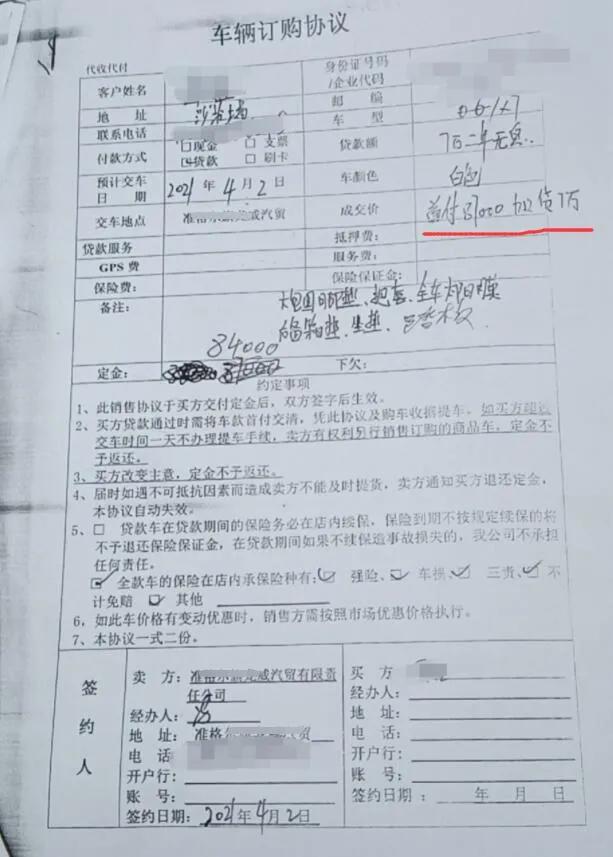 车辆订购协议
代收代付
客户姓名 身份证号码/企业代码
地址 邮编
联系电话 车型
付款方式 □现金 □支票 ☑贷款 □刷卡 贷款额 7万二年无息
预计交车日期 2021年4月2日 车颜色 白色
交车地点 成交价 首付 加贷7万
贷款服务 抵押费:
GPS费 服务费:
保险费: 保险保证金:
备注: 大包围脚垫、把套、全车太阳膜
后备箱垫、坐垫、踏板
84000
定金: 下欠:
约定事项
1、此销售协议于买方交付定金后,双方签字后生效。
2、买方贷款通过时需将车款首付交清,凭此协议及购车收据提车,如买方超过
交车时间一天不办理提车手续,卖方有权利另行销售订购的商品车,定金不
予返还。
3、买方改变主意,定金不予返还。
4、届时如遇不可抗因素而造成卖方不能及时提货,卖方通知买方退还定金,
本协议自动失效。
5、□ 贷款车在贷款期间的保险务必在店内续保,保险到期不按规定续保的将
不予退还保险保证金,在贷款期间如果不续保造事故损失的,我公司不承担
任何责任。
☑ 全款车的保险在店内承保险种有:☑ 强险、☑ 车损、☑ 三责、☑ 不
计免赔 ☑ 其他
6、如此车价格有变动优惠时,销售方需按照市场优惠价格执行。
7、本协议一式二份。
签约人
卖方: 汽贸有限责
任公司
经办人:
地址: 准格
电话
开户行:
账号:
签约日期: 2021年4月2日
买方
经办人:
地址:
电话:
开户行:
账号:
签约日期: 年 月 日